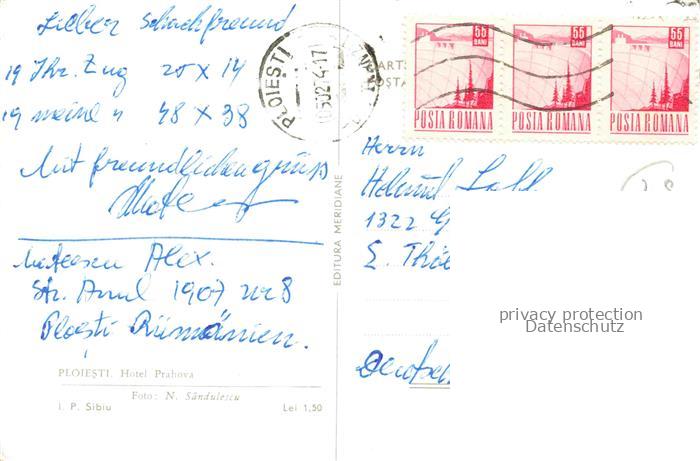 Lieber Schachfreund
19 Ihr. Zug 25 x 14
19 meine n 48 x 38
Mit freundlichen grüss
Mateescu Alex.
Str. Anul 1907 nr 8
Ploești Rümänien.
PLOIEȘTI. Hotel Prahova
Foto: N. Săndulescu
I. P. Sibiu Lei 1,50
EDITURA MERIDIANE
PLOIEȘTI
55 BANI 55 BANI 55 BANI
POSTA ROMANA POSTA ROMANA POSTA ROMANA
Herrn
Helmut
1322
E. Thä
Deutsch
privacy protection
Datenschutz